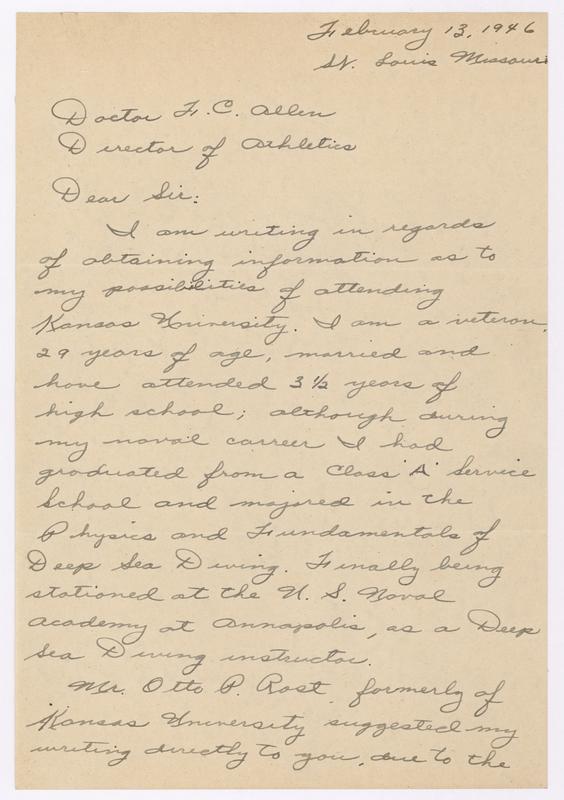 February 13, 1946
St. Louis Missouri
Doctor F. C. Allen
Director of Athletics
Dear Sir:
I am writing in regards
of obtaining information as to
my possibilities of attending
Kansas University. I am a veteran,
29 years of age, married and
have attended 3 1/2 years of
high school; although during
my naval carreer I had
graduated from a Class "A" Service
School and majored in the
Physics and Fundamentals of
Deep Sea Diving. Finally being
stationed at the U. S. Naval
Academy at Annapolis, as a Deep
Sea Diving instructor.
Mr. Otto P. Rost, formerly of
Kansas University suggested my
writing directly to you, due to the